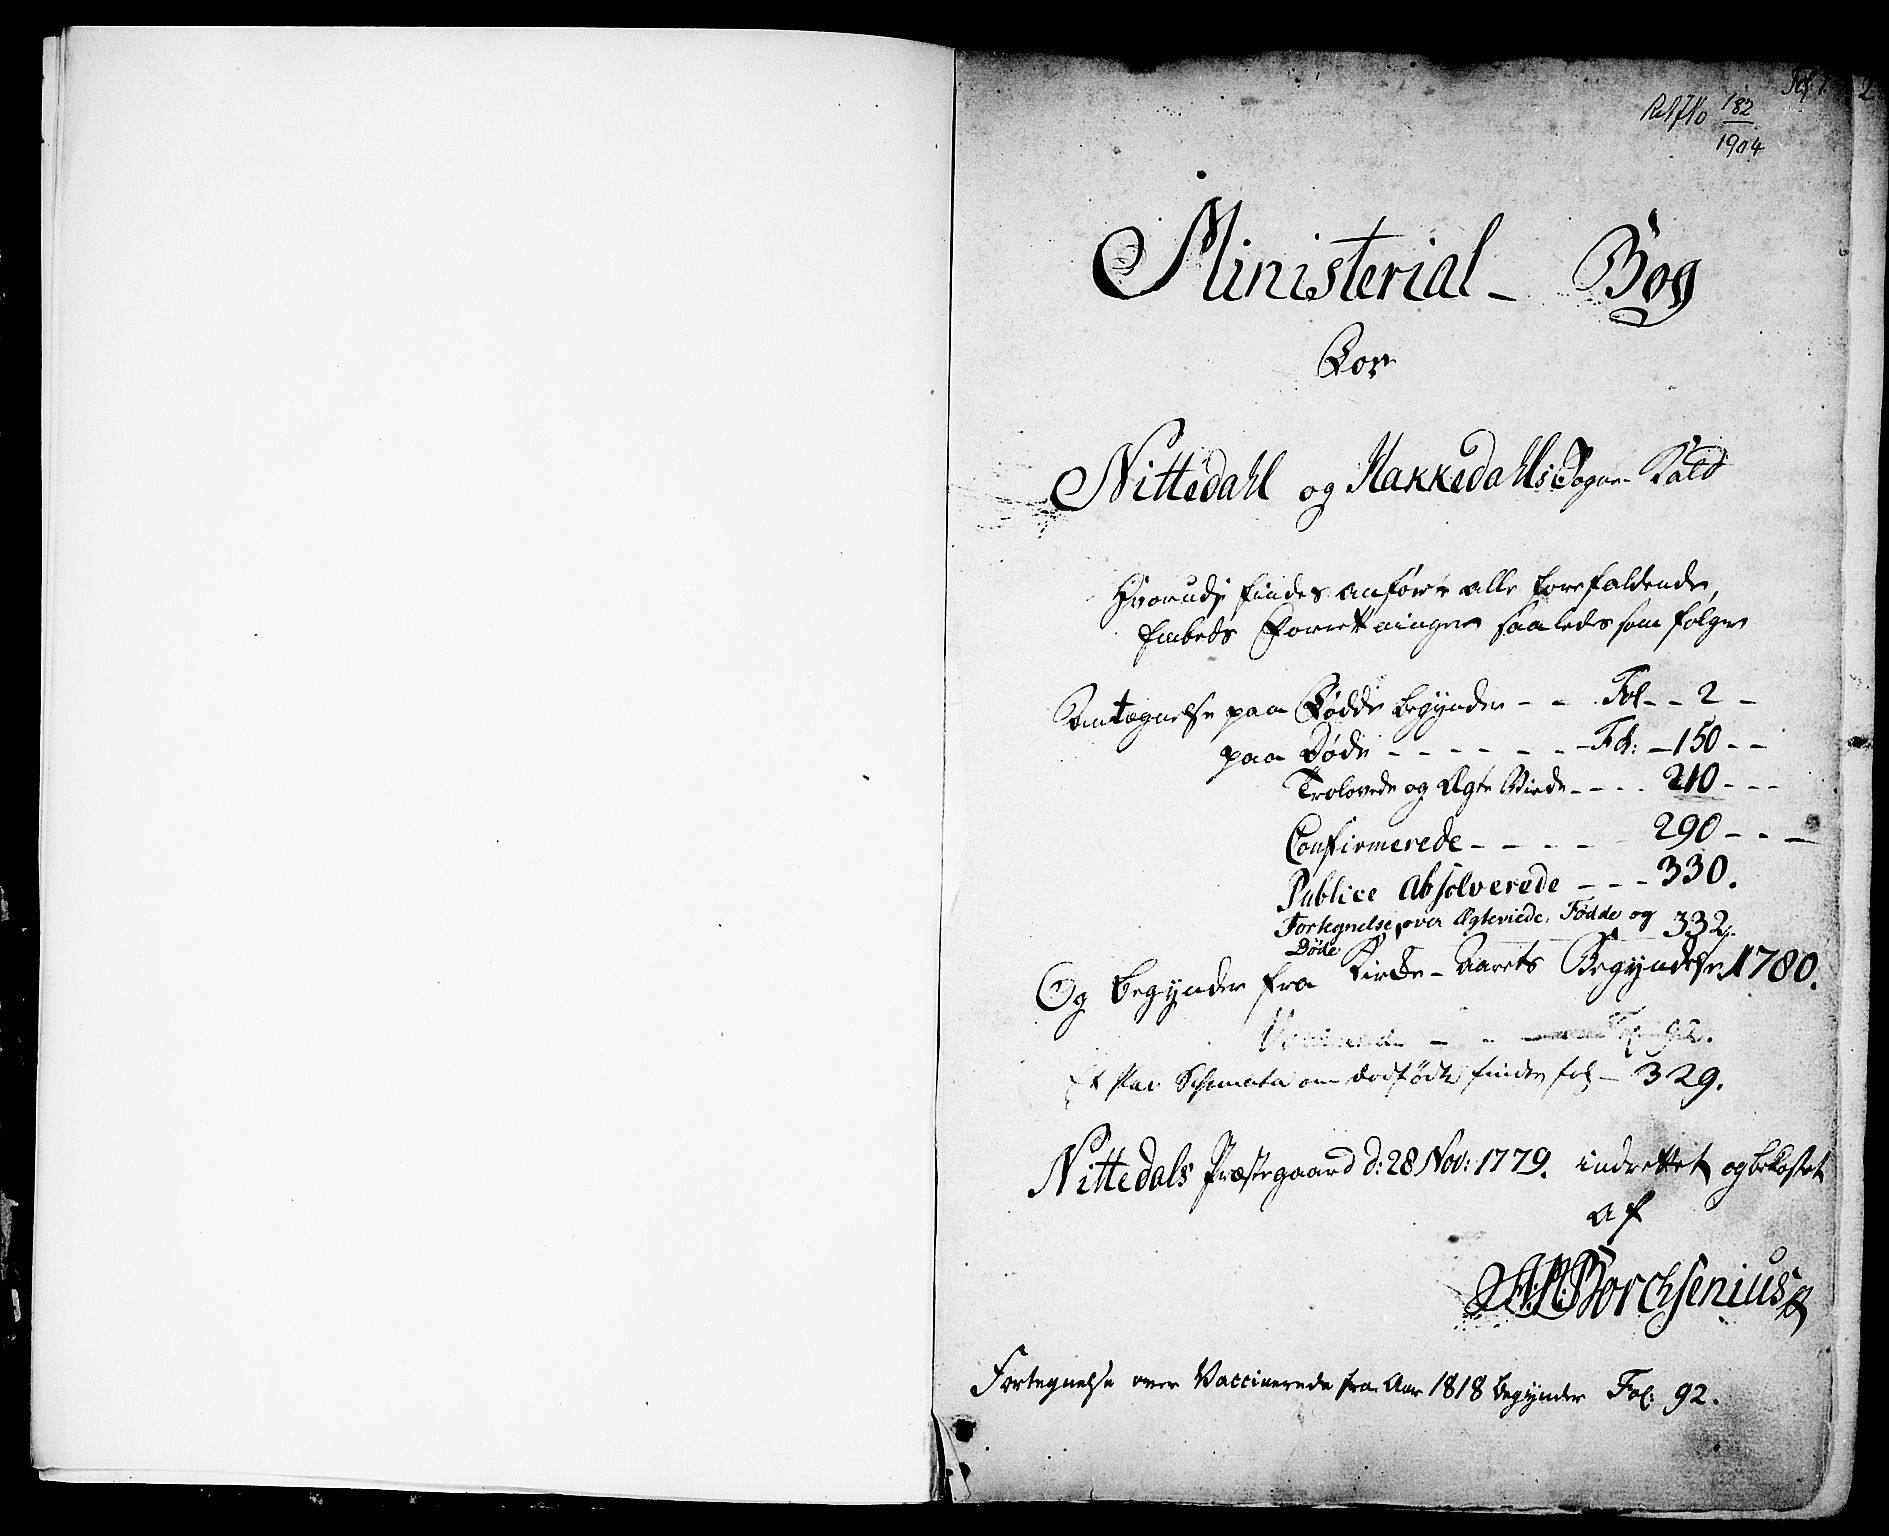 Fol. 1.
182
1904
Ministerial- Bog
For
Nittedahl og Hakkedahls Sogne-Kald
Hvorudj findes anført alle forefaldende
Embeds Forretninger saaledes som følger
Antægnelse paa Fødde begynder - - Fol - - 2 -
paa Døde - - - - - - - Fol: - 150 - -
Trolovede og Ægte Viede - - - - 210 - - -
Confirmerede - - - - - 290 - - -
Publice Absolverede - - - 330.
Fortegnelse over Ægteviede, Fødde og 332.
Døde
Og begynder fra Kirke-Aarets Begyndelse 1780.
Fol. 92.
Et Par Schemata om dødfødte findes fol - 329.
Nittedals Præstegaard d: 28 Nov: 1779. indrettet og bekostet
af
Borchsenius
Fortegnelse over Vaccinerede fra Aar 1818 begynder Fol: 92.